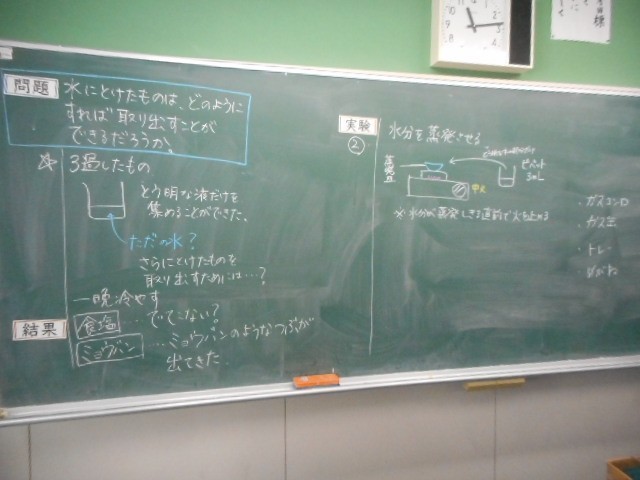 問題
水にとけたものは、どのように
すれば取り出すことが
できるだろうか。
3過したもの
とう明な液だけを
集めることができた。
ただの水?
さらにとけたものを
取り出すためには…?
一晩冷やす
結果
食塩 …でてこない?
ミョウバン …ミョウバンのようなつぶが
出てきた
実験
②
水分を蒸発させる
蒸発皿
ピペット
3mL
中火
※水分が蒸発しきる直前で火を止める
・ガスコンロ
・ガス缶
・トレー
・めがね
12
1
2
3
4
5
6
7
8
9
10
11